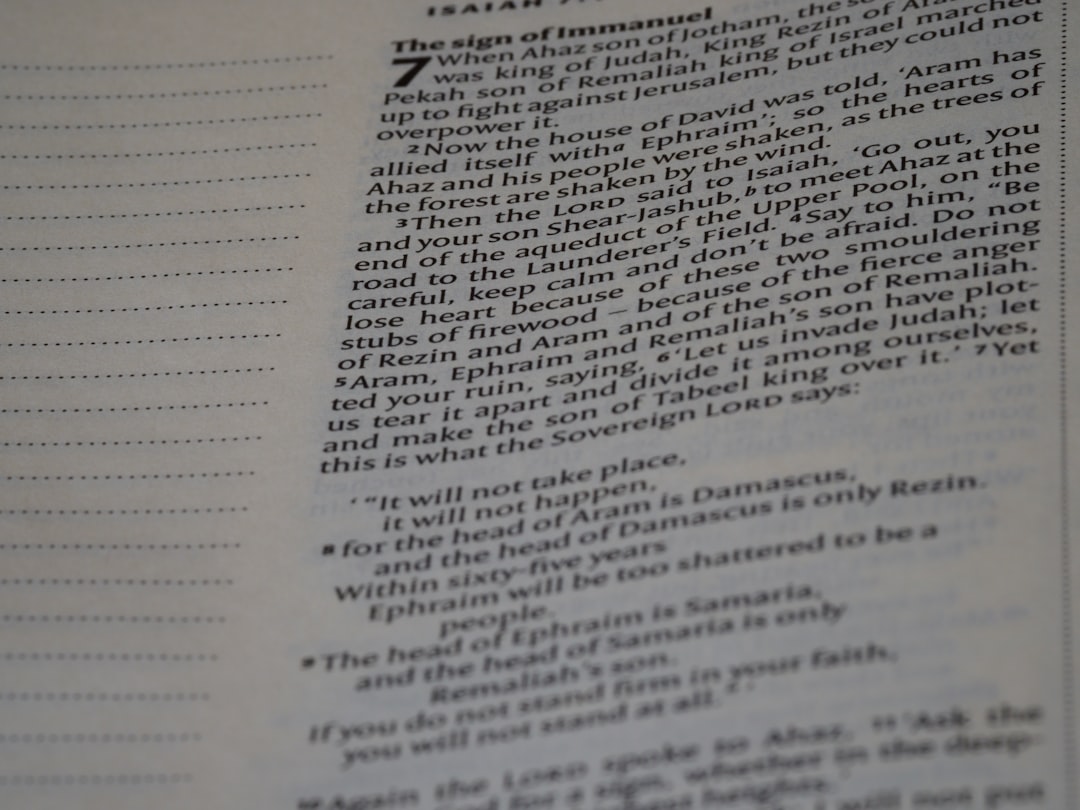 ISAIAH 7
The sign of Immanuel
7 When Ahaz son of Jotham, the
was king of Judah, King Rezin of
Pekah son of Remaliah king of Israel marched
up to fight against Jerusalem, but they could not
overpower it.
2 Now the house of David was told, ‘Aram has
allied itself with a Ephraim’; so the hearts of
Ahaz and his people were shaken, as the trees of
the forest are shaken by the wind.
3 Then the LORD said to Isaiah, ‘Go out, you
and your son Shear-Jashub, b to meet Ahaz at the
end of the aqueduct of the Upper Pool, on the
road to the Launderer’s Field. 4 Say to him, “Be
careful, keep calm and don’t be afraid. Do not
lose heart because of these two smouldering
stubs of firewood – because of the fierce anger
of Rezin and Aram and of the son of Remaliah.
5 Aram, Ephraim and Remaliah’s son have plot-
ted your ruin, saying, 6 ‘Let us invade Judah; let
us tear it apart and divide it among ourselves,
and make the son of Tabeel king over it.’ 7 Yet
this is what the Sovereign LORD says:
‘ “It will not take place,
it will not happen,
8 for the head of Aram is Damascus,
and the head of Damascus is only Rezin.
Within sixty-five years
Ephraim will be too shattered to be a
people.
9 The head of Ephraim is Samaria,
and the head of Samaria is only
Remaliah’s son.
If you do not stand firm in your faith,
you will not stand at all.” ’
10 Again the LORD spoke to Ahaz, 11 ‘Ask the
for a sign, whether in the deep-
heights.’